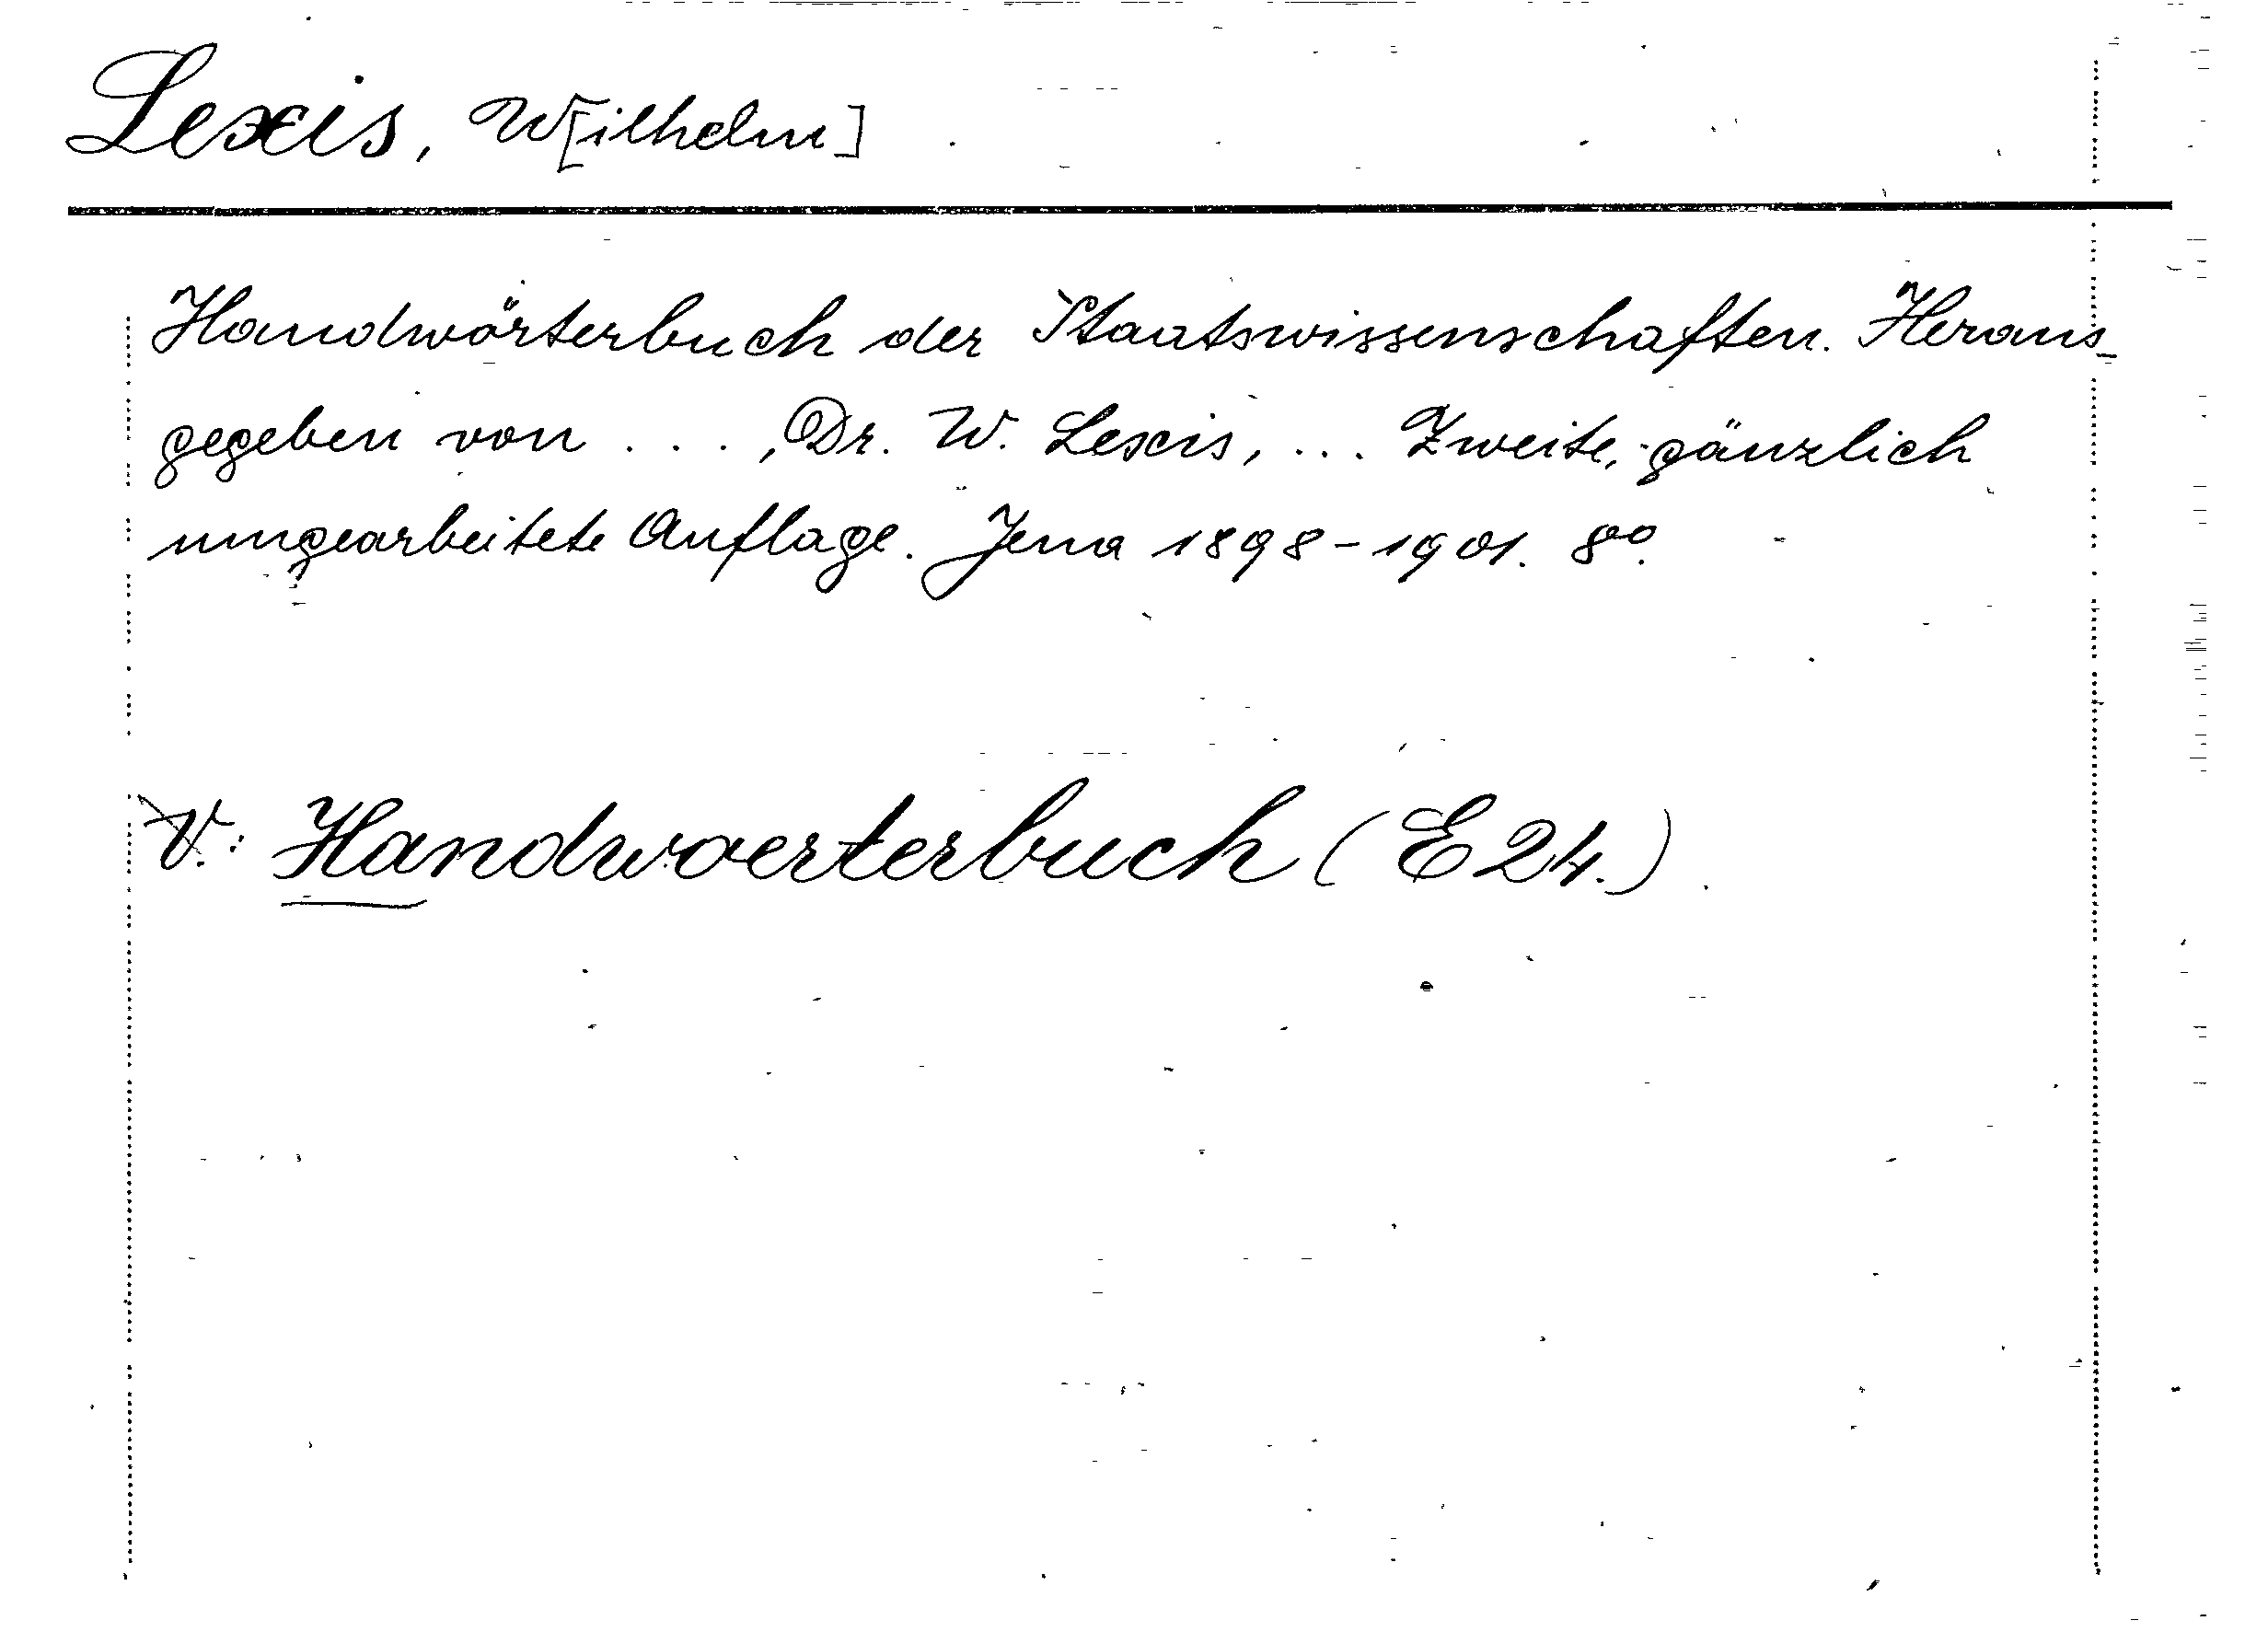 Lexis, W[ilhelm]
Handwörterbuch der Staatswissenschaften. Heraus-
gegeben von . . . , Dr. W. Lexis, ... Zweite, gänzlich
umgearbeitete Auflage. Jena 1898-1901. 8º.
V.: Handwoerterbuch (E24.)